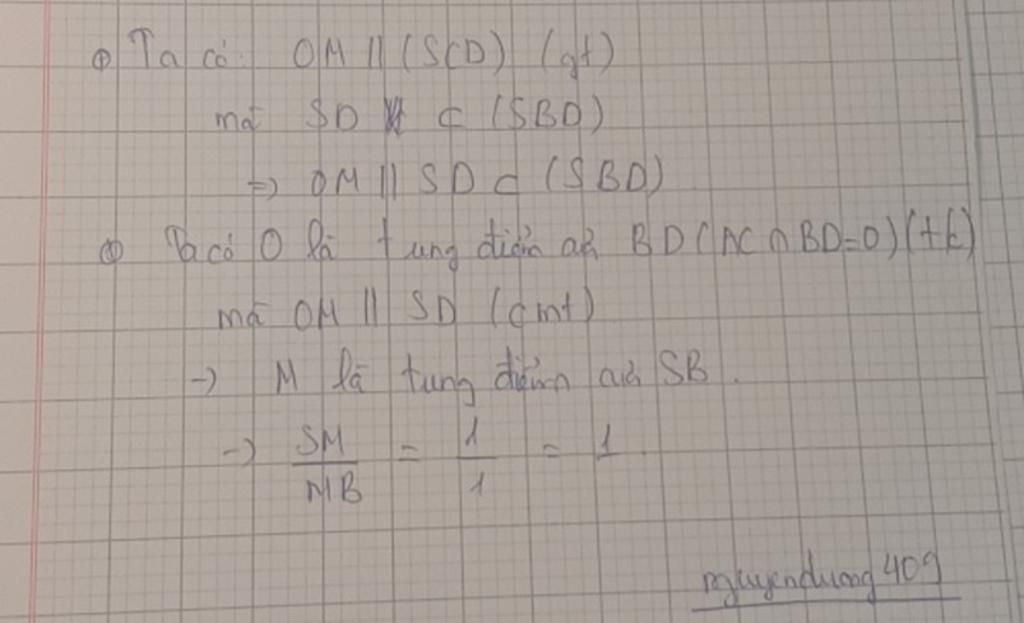 ⊕ Ta có: OM || (SCD) (gt)
mà SD ⊂ (SBD)
=> OM || SD ⊂ (SBD)
⊕ Ta có O là trung điểm của BD (AC ∩ BD = O) (t/c)
mà OM || SD (cmt)
-> M là trung điểm của SB.
-> SM/MB = 1/1 = 1
nguyenduong409